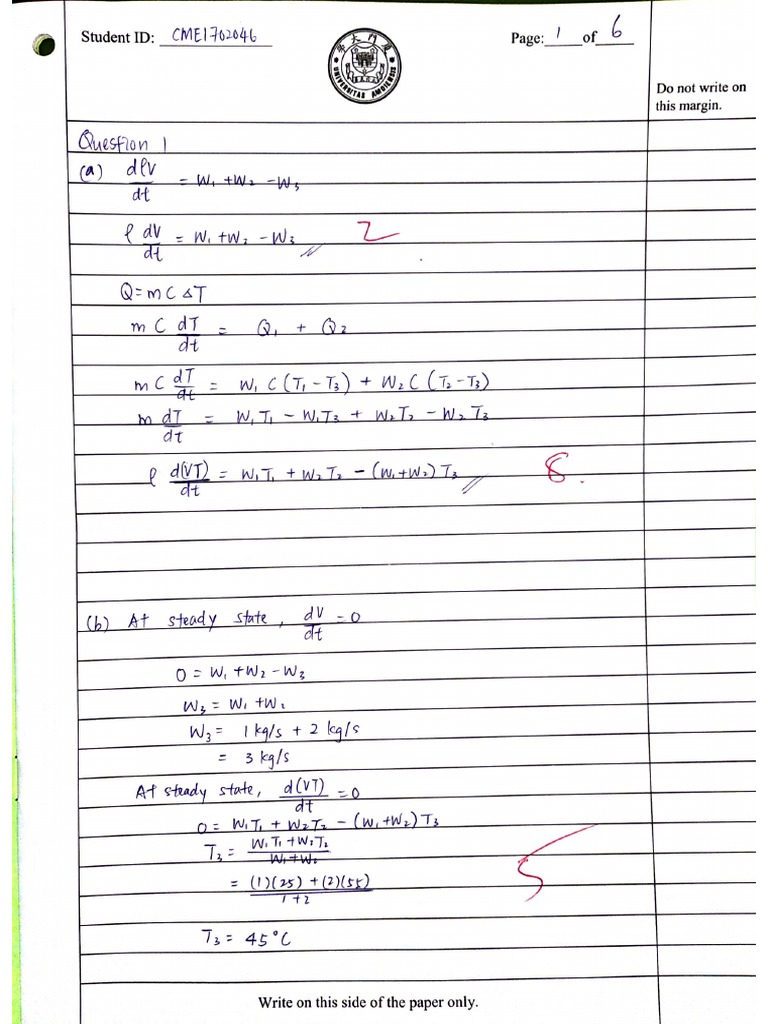 Student ID: CME1702046
Page: 1 of 6
廈門大學
UNIVERSITAS AMOIENSIS
Do not write on
this margin.
Question 1
(a) dρV/dt = W₁ + W₂ - W₃
ρ dV/dt = W₁ + W₂ - W₃ 2
Q = mCΔT
mC dT/dt = Q₁ + Q₂
mC dT/dt = W₁C(T₁ - T₃) + W₂C(T₂ - T₃)
m dT/dt = W₁T₁ - W₁T₃ + W₂T₂ - W₂T₃
ρ d(VT)/dt = W₁T₁ + W₂T₂ - (W₁+W₂)T₃ 8.
(b) At steady state, dV/dt = 0
0 = W₁ + W₂ - W₃
W₃ = W₁ + W₂
W₃ = 1 kg/s + 2 kg/s
= 3 kg/s
At steady state, d(VT)/dt = 0
0 = W₁T₁ + W₂T₂ - (W₁+W₂)T₃
T₃ = W₁T₁ + W₂T₂ / W₁ + W₂
= (1)(25) + (2)(55) / 1+2 5
T₃ = 45°C
Write on this side of the paper only.